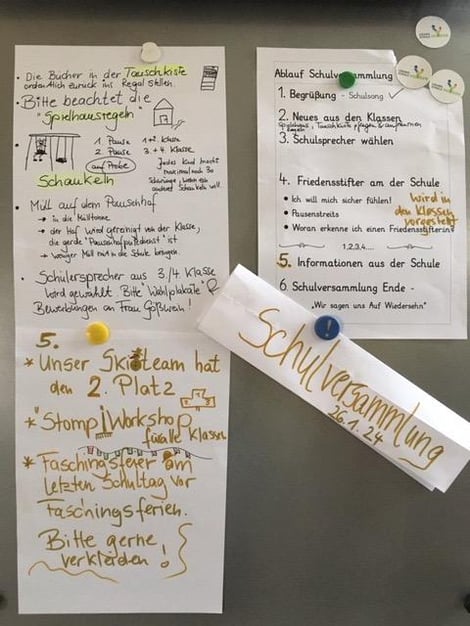 • Die Bücher in der Tauschkiste
ordentlich zurück ins Regal stellen.
• Bitte beachtet die
"Spielhausregeln"
1. Pause 1+2. Klasse
2. Pause 3.+4. Klasse
auf Probe
Schaukeln
• Müll auf dem Pausenhof
→ in die Mülltonne
→ der Hof wird gereinigt von der Klasse,
die gerade "Pausenhofputzdienst" ist
→ weniger Müll mit in die Schule bringen.
• Schülersprecher aus 3./4. Klasse
wird gewählt. Bitte "Wahlplakate" &
Bewerbungen an Frau Goßwein!
5.
* Unser Skiteam hat
den 2. Platz
* "Stomp" Workshop
für alle Klassen
* Faschingsfeier am
letzten Schultag vor
Faschingsferien.
Bitte gerne
verkleiden!
Ablauf Schulversammlung
1. Begrüßung - Schulsong
2. Neues aus den Klassen
3. Schulsprecher wählen
4. Friedensstifter an der Schule
• Ich will mich sicher fühlen!
• Pausenstreits
• Woran erkenne ich einen Friedensstifter:in?
wird in
den Klassen
vorgestellt
1,2,3,4....
5. Informationen aus der Schule
6. Schulversammlung Ende -
„Wir sagen uns Auf Wiedersehn"
Schulversammlung
26.1.24